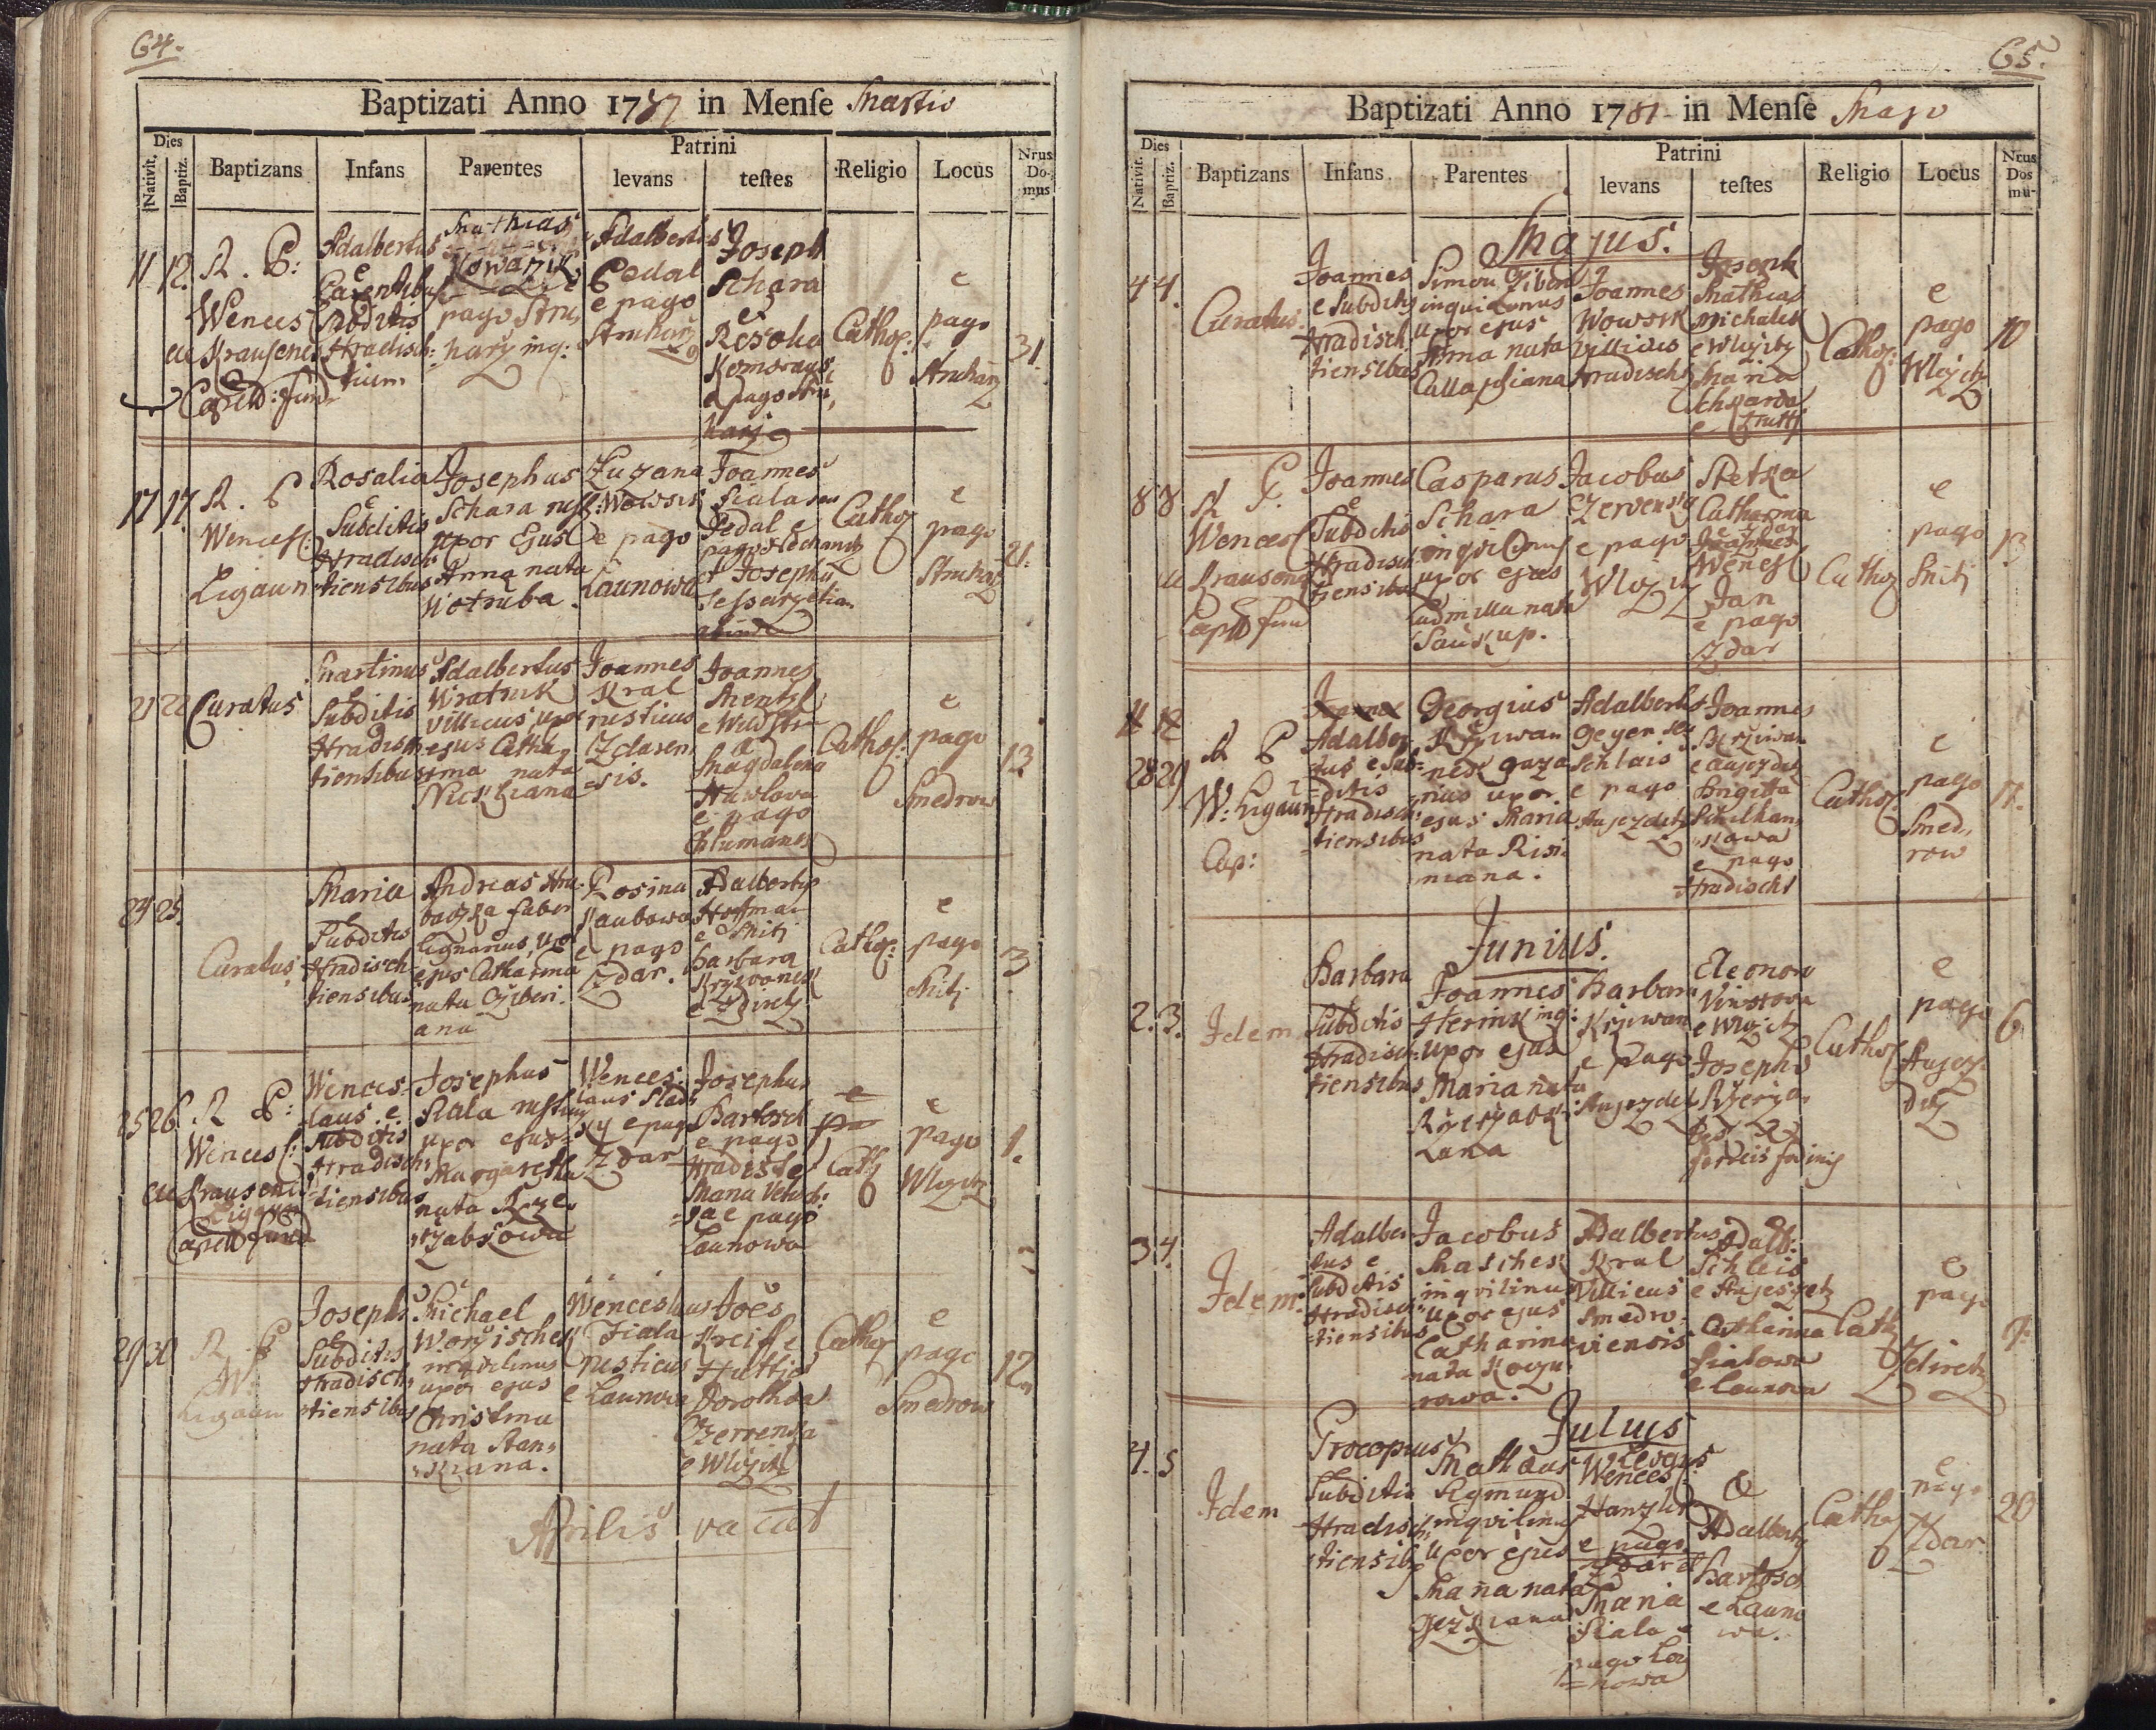 64.
Baptizati Anno 1787 in Mense Martio
Dies
Nativit.
Baptiz.
Baptizans
Infans
Parentes
Patrini
levans
testes
Religio
Locus
Nrus Do- mus
11 12.
R. P:
Wences
Capell: fund
Adalbertus
e
Parentibus
Subditis
Hradisch=
tium
Mathias
Kowarzik
e
pago Stru
harz inq:
Adalbertus
Pedal
e pago
Struharz
Joseph
Schara
et
Rosalia
e pago Stru
harz
Cathol:
e
pago
Struharz
31.
17 17.
R. P
Wencesl:
Ligaun
Rosalia
e
Subditis
Hradisch
tiensibus
Josephus
Schara rust:
uxor Ejus
Anna nata
Wotruba
Zuzana
Wowsik
e pago
Launowa
Joannes
Fiala seu
Pedal e
pago
et Josephus
Cathol
e
pago
Struharz
21.
21 22
Curatus
Martinus
Subditis
Hradisch
tiensibus
Adalbertus
Wratnik
villicus uxor
ejus Catha
rina nata
Nickliana
Joannes
Kral
rusticus
Zdaren
sis.
Joannes
Mentzl
e
Magdalena
Hawlowa
e pago
Chlumanek
Cathol:
e
pago
Smedrow
13
24 25.
Curatus
Maria
e
Subditis
Hradisch
tiensibus
Andreas Hru
baczka faber
lignarius, uxor
ejus Catharina
nata Cziberi
ana
Rosina
Kaubowa
e pago
Zdar.
Adalbertus
Hoffman
e Miti
Barbara
Krziwanek
e Zdiretz
Cathol:
e
pago
Miti
3
25 26.
R P:
Wencesl:
Ligaun
Capell fund
Wences=
laus e
Subditis
Hradisch
tiensibus
Josephus
Fiala rusticus
uxor ejus
Margaretha
nata Rze
rzabkowa
Wences
laus Slad
ky e pago
Zdar
Josephus
Bartosch
e pago
Hradischt
Maria
e pago
Launowa
Cath
e
pago
Wlczitz
1.
29 30
R P
W.
Ligaun
Josephus
e
Subditis
Hradisch
tiensibus
Michael
Worzischek
inquilinus
uxor ejus
Christina
nata Stan
kiana.
Wenceslaus
Fiala
rusticus
e Launowa
Joes
Kreiss e
Huttis
Dorothea
Czervenka
e Wlczitz
Cathol
e
pago
Smedrow
12
Aprilis vacat
65.
Baptizati Anno 1787 in Mense Mayo
Dies
Nativit.
Baptiz.
Baptizans
Infans
Parentes
Patrini
levans
testes
Religio
Locus
Nrus Dos mu-
Majus.
4 4.
Curatus.
Joannes
e Subditis
Hradisch
tiensibus
Simon Ziber
inquilinus
uxor ejus
Anna nata
Joannes
Wowsik
villicus
Hradischt
Joseph
Mathias
Michalek
e Wlczitz
Maria
e Hutti
Cathol:
e
pago
Wlczitz
10
8 8
R P.
Wencesl
Capell fun
Joannes
e
Subditis
Hradisch
tiensibus
Casparus
Schara
inquilinus
uxor ejus
Ludmilla nata
Saukup.
Jacobus
Czervenka
e pago
Wlczitz
Stetka
Catharina
e Zdar
Wencesl
Jan
e pago
Zdar
Cathol
e
pago
Miti
28 29
R P
W: Ligaun
Cap:
Adalber
tus e Sub=
ditis
Hradisch
tiensibus
Georgius
Krziwa
nek gaza
rius uxor
ejus Maria
nata Risi
niana.
Adalbertus
Geyer seu
Schlais
e pago
Aujezdetz
Joannes
Krziwan
e Aujezdetz
Brigitta
Schilhan
kowa
e pago
Hradischt
Cathol:
e
pago
Smed
row
17.
Junius.
2. 3.
Idem
Barbara
e
Subditis
Hradisch
tiensibus
Joannes
Herink inq:
uxor ejus
Maria nata
Rzerzabk
iana
Barbara
Krziwan
e pago
Aujezdetz
Eleonora
e Wlczitz
Josephus
Cathol
e
pago
Aujez
detz
6
3 4.
Idem
Adalber
tus e
Subditis
Hradisch
tiensibus
Jacobus
Maschek
inquilinus
uxor ejus
Catharina
nata
rowa.
Adalbertus
Kral
villicus
Smedro
viensis
Adalb:
Schleis
e Aujeszdetz
Catharina
Fialowa
e Launova
Cath
e
pago
Zdiretz
9.
Julius
4. 5
Idem
Procopius
e
Subditis
Hradisch
tiensibus
Mathaus
Sigmund
inquilinus
uxor ejus
Maria nata
Levans
Wencesl:
Hanzlik
e pago
Zdar et
Maria
Fiala e
pago Lau
nowa
&
Adalbertus
Bartosch
e Launo
wa.
Cathol
e
pago
Zdar
20